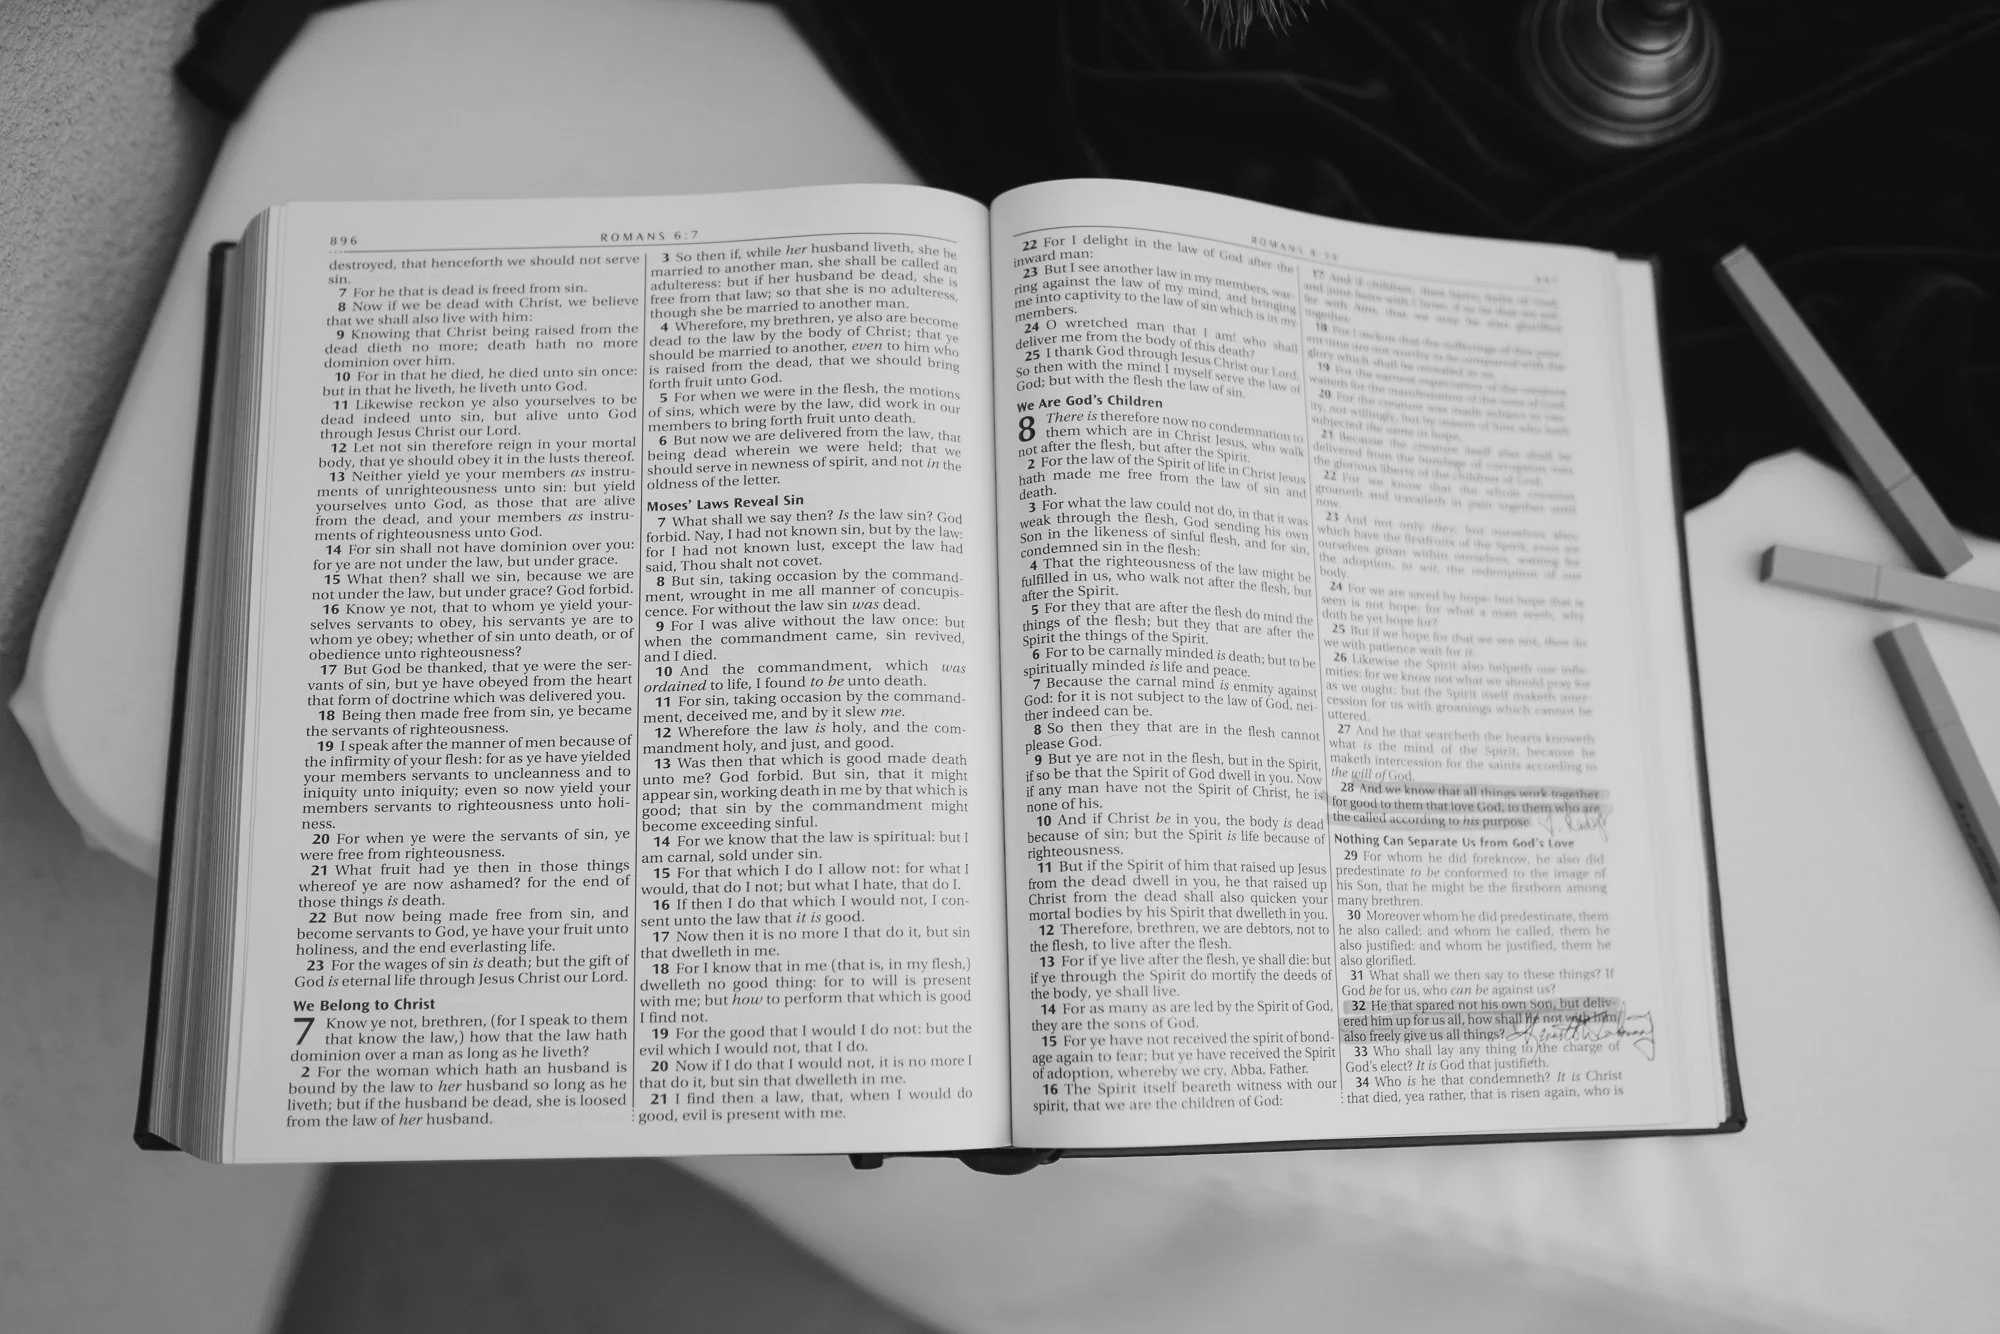 896
ROMANS 6:7
destroyed, that henceforth we should not serve
sin.
7 For he that is dead is freed from sin.
8 Now if we be dead with Christ, we believe
that we shall also live with him:
9 Knowing that Christ being raised from the
dead dieth no more; death hath no more
dominion over him.
10 For in that he died, he died unto sin once:
but in that he liveth, he liveth unto God.
11 Likewise reckon ye also yourselves to be
dead indeed unto sin, but alive unto God
through Jesus Christ our Lord.
12 Let not sin therefore reign in your mortal
body, that ye should obey it in the lusts thereof.
13 Neither yield ye your members as instru-
ments of unrighteousness unto sin: but yield
yourselves unto God, as those that are alive
from the dead, and your members as instru-
ments of righteousness unto God.
14 For sin shall not have dominion over you:
for ye are not under the law, but under grace.
15 What then? shall we sin, because we are
not under the law, but under grace? God forbid.
16 Know ye not, that to whom ye yield your-
selves servants to obey, his servants ye are to
whom ye obey; whether of sin unto death, or of
obedience unto righteousness?
17 But God be thanked, that ye were the ser-
vants of sin, but ye have obeyed from the heart
that form of doctrine which was delivered you.
18 Being then made free from sin, ye became
the servants of righteousness.
19 I speak after the manner of men because of
the infirmity of your flesh: for as ye have yielded
your members servants to uncleanness and to
iniquity unto iniquity; even so now yield your
members servants to righteousness unto holi-
ness.
20 For when ye were the servants of sin, ye
were free from righteousness.
21 What fruit had ye then in those things
whereof ye are now ashamed? for the end of
those things is death.
22 But now being made free from sin, and
become servants to God, ye have your fruit unto
holiness, and the end everlasting life.
23 For the wages of sin is death; but the gift of
God is eternal life through Jesus Christ our Lord.
We Belong to Christ
7 Know ye not, brethren, (for I speak to them
that know the law,) how that the law hath
dominion over a man as long as he liveth?
2 For the woman which hath an husband is
bound by the law to her husband so long as he
liveth; but if the husband be dead, she is loosed
from the law of her husband.
3 So then if, while her husband liveth, she be
married to another man, she shall be called an
adulteress: but if her husband be dead, she is
free from that law; so that she is no adulteress,
though she be married to another man.
4 Wherefore, my brethren, ye also are become
dead to the law by the body of Christ; that ye
should be married to another, even to him who
is raised from the dead, that we should bring
forth fruit unto God.
5 For when we were in the flesh, the motions
of sins, which were by the law, did work in our
members to bring forth fruit unto death.
6 But now we are delivered from the law, that
being dead wherein we were held; that we
should serve in newness of spirit, and not in the
oldness of the letter.
Moses' Laws Reveal Sin
7 What shall we say then? Is the law sin? God
forbid. Nay, I had not known sin, but by the law:
for I had not known lust, except the law had
said, Thou shalt not covet.
8 But sin, taking occasion by the command-
ment, wrought in me all manner of concupis-
cence. For without the law sin was dead.
9 For I was alive without the law once: but
when the commandment came, sin revived,
and I died.
10 And the commandment, which was
ordained to life, I found to be unto death.
11 For sin, taking occasion by the command-
ment, deceived me, and by it slew me.
12 Wherefore the law is holy, and the com-
mandment holy, and just, and good.
13 Was then that which is good made death
unto me? God forbid. But sin, that it might
appear sin, working death in me by that which is
good; that sin by the commandment might
become exceeding sinful.
14 For we know that the law is spiritual: but I
am carnal, sold under sin.
15 For that which I do I allow not: for what I
would, that do I not; but what I hate, that do I.
16 If then I do that which I would not, I con-
sent unto the law that it is good.
17 Now then it is no more I that do it, but sin
that dwelleth in me.
18 For I know that in me (that is, in my flesh,)
dwelleth no good thing: for to will is present
with me; but how to perform that which is good
I find not.
19 For the good that I would I do not: but the
evil which I would not, that I do.
20 Now if I do that I would not, it is no more I
that do it, but sin that dwelleth in me.
21 I find then a law, that, when I would do
good, evil is present with me.
22 For I delight in the law of God after the
inward man:
23 But I see another law in my members, war-
ring against the law of my mind, and bringing
me into captivity to the law of sin which is in my
members.
24 O wretched man that I am! who shall
deliver me from the body of this death?
25 I thank God through Jesus Christ our Lord.
So then with the mind I myself serve the law of
God; but with the flesh the law of sin.
We Are God's Children
8 There is therefore now no condemnation to
them which are in Christ Jesus, who walk
not after the flesh, but after the Spirit.
2 For the law of the Spirit of life in Christ Jesus
hath made me free from the law of sin and
death.
3 For what the law could not do, in that it was
weak through the flesh, God sending his own
Son in the likeness of sinful flesh, and for sin,
condemned sin in the flesh:
4 That the righteousness of the law might be
fulfilled in us, who walk not after the flesh, but
after the Spirit.
5 For they that are after the flesh do mind the
things of the flesh; but they that are after the
Spirit the things of the Spirit.
6 For to be carnally minded is death; but to be
spiritually minded is life and peace.
7 Because the carnal mind is enmity against
God: for it is not subject to the law of God, nei-
ther indeed can be.
8 So then they that are in the flesh cannot
please God.
9 But ye are not in the flesh, but in the Spirit,
if so be that the Spirit of God dwell in you. Now
if any man have not the Spirit of Christ, he is
none of his.
10 And if Christ be in you, the body is dead
because of sin; but the Spirit is life because of
righteousness.
11 But if the Spirit of him that raised up Jesus
from the dead dwell in you, he that raised up
Christ from the dead shall also quicken your
mortal bodies by his Spirit that dwelleth in you.
12 Therefore, brethren, we are debtors, not to
the flesh, to live after the flesh.
13 For if ye live after the flesh, ye shall die: but
if ye through the Spirit do mortify the deeds of
the body, ye shall live.
14 For as many as are led by the Spirit of God,
they are the sons of God.
15 For ye have not received the spirit of bond-
age again to fear; but ye have received the Spirit
of adoption, whereby we cry, Abba, Father.
16 The Spirit itself beareth witness with our
spirit, that we are the children of God:
17 And if children, then heirs; heirs of God,
and joint-heirs with Christ; if so be that we suf-
fer with him, that we may be also glorified
together.
18 For I reckon that the sufferings of this pres-
ent time are not worthy to be compared with the
glory which shall be revealed in us.
19 For the earnest expectation of the creature
waiteth for the manifestation of the sons of God.
20 For the creature was made subject to van-
ity, not willingly, but by reason of him who hath
subjected the same in hope,
21 Because the creature itself also shall be
delivered from the bondage of corruption into
the glorious liberty of the children of God.
22 For we know that the whole creation
groaneth and travaileth in pain together until
now.
23 And not only they, but ourselves also,
which have the firstfruits of the Spirit, even we
ourselves groan within ourselves, waiting for
the adoption, to wit, the redemption of our
body.
24 For we are saved by hope: but hope that is
seen is not hope: for what a man seeth, why
doth he yet hope for?
25 But if we hope for that we see not, then do
we with patience wait for it.
26 Likewise the Spirit also helpeth our infir-
mities: for we know not what we should pray for
as we ought: but the Spirit itself maketh inter-
cession for us with groanings which cannot be
uttered.
27 And he that searcheth the hearts knoweth
what is the mind of the Spirit, because he
maketh intercession for the saints according to
the will of God.
28 And we know that all things work together
for good to them that love God, to them who are
the called according to his purpose.
Nothing Can Separate Us from God's Love
29 For whom he did foreknow, he also did
predestinate to be conformed to the image of
his Son, that he might be the firstborn among
many brethren.
30 Moreover whom he did predestinate, them
he also called: and whom he called, them he
also justified: and whom he justified, them he
also glorified.
31 What shall we then say to these things? If
God be for us, who can be against us?
32 He that spared not his own Son, but deliv-
ered him up for us all, how shall he not with him
also freely give us all things?
33 Who shall lay any thing to the charge of
God's elect? It is God that justifieth.
34 Who is he that condemneth? It is Christ
that died, yea rather, that is risen again, who is